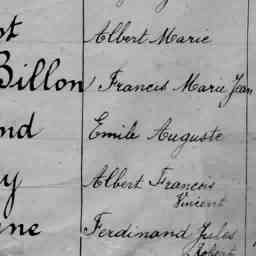 st Albert Marie
Billon Francis Marie Jean
nd Emile Auguste
y Albert François
Vincent
ne Ferdinand Jules
Robert